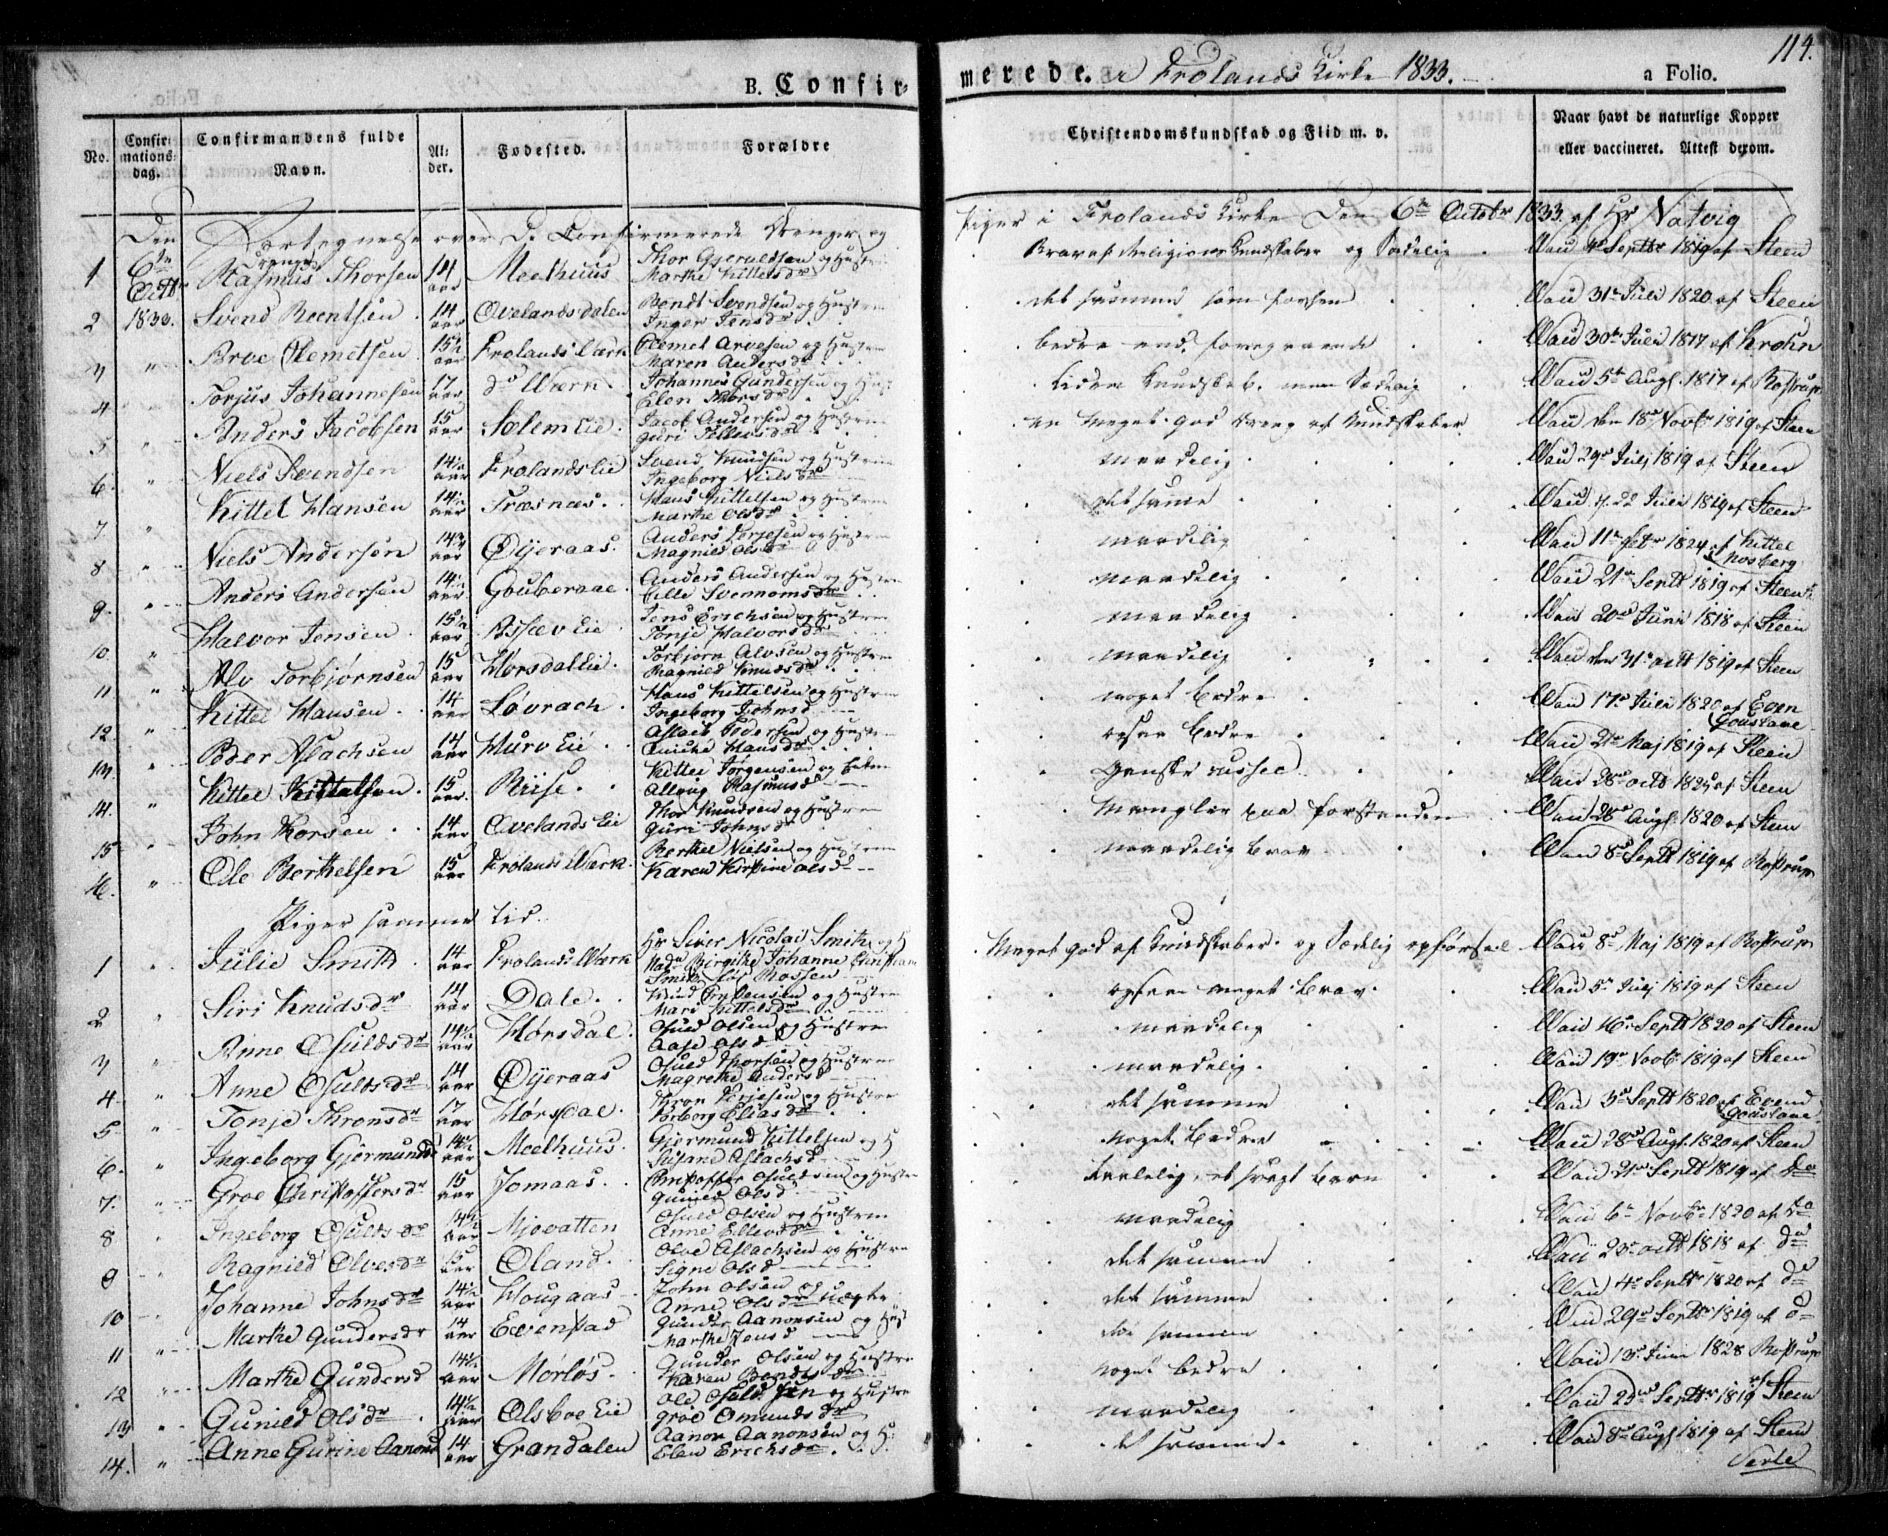 114.
B. Confirmerede. i Frolands Kirke 1833.
a Folio.
No. Confirmationsdag. Confirmandens fulde Navn. Alder. Fodested. Forældre Christendomskundskab og Flid m. v. Naar havt de naturlige Kopper eller vaccineret. Attest derom.
Den Fortegnelse over De Confirmerede Drenge og Piger i Frolands Kirke Den 6te Octobr 1833. af Hr Natvig
1 6te Octbr Rasmus Thorsen 14 aar Meelhuus Thor Gjeruldsen og Hustru Marthe Kittelsdr Brav af Religions Kundskaber og Sædelig Vaci 4de Septbr 1819 af Steen
2 1833. Svend Beentsen 14 aar Ovelandsdalen Bendt Svendsen og Hustru Inger Jensdr det samme som forhen Vaci 31te Juli 1820 af Steen
3 " Broe Clemetsen 15½ aar Frolands Værk Clemet Arvesen og Hustru Maren Andersdr bedre end foregaaende Vaci 30te Juli 1817 af Krohn
4 " Torjus Johannesen 17 aar do Værn Johannes Gundersen og Hust Elen Thorsdr liden Kundskab, men Sædelig Vaci 5te Augt. 1817 af Rostrup
5 " Anders Jacobsen 15 aar Solem Eie Jacob Andersen og Hustru Guri Tellevsdr en Meget god Dreng af Kundskaber Vaci den 18de Novbr 1819 af Steen
6. " Niels Svendsen 14½ aar Frolands Eie Svend Knudsen og Hustru Ingeborg Nielsdr maadelig Vaci 29de Julj 1819 af Steen
7. " Kittel Hansen 14½ aar Træsnæs. Hans Kittelsen og Hustru Marthe Olsdr det same Vaci 22 Juli 1819 af Steen
8 " Niels Andersen 14¾ aar Øijeraas. Anders Terjesen og Hustru Magnild Olsdr maadelig Vaci 11te 1824 af Kittel Mosberg
9. " Anders Andersen 14½ aar Gouberaae Anders Andersen og Hustru maadelig Vaci 21de Septb 1819 af Steen
10. " Halvor Jensen 15½ aar Assæv Eie Jens Erichsen og Hustru Tonje Halvorsdr maadelig Vaci 20de Juni 1818 af Steen
11. " Alv Torbjørnsen 15 aar Hørsdal Eie. Torbjørn Alvsen og Hustru Ragnild Knudsdr maadelig Vaci den 31te octb 1819 af Steen
12. " Kittel Hansen 14 aar Løvrach. Hans Kittelsen og Hustru Ingeborg Johnsd noget bedre Vaci 17de Juli 1820 af Even Goustane
13. " Peder Aslachsen 14 aar Hurv Eie Aslach Pedersen og Hustru Hansdr ogsaa bedre Vaci 21de Maj 1819 af Steen
14. " Kittel Kittelsen. 15 aar. Riise. Kittel Jørgensen og Allvug Rasmusd Ganske Vaci 28de octb 1825 af Steen
15 " John Thorsen 14 aar Ovelands Eie Thor Knudsen og Hustru Guri Johnsd Mangler paa forstanden Vaci 28de Augt. 1820 af Steen
16. " Ole Berthelsen 15 aar Frolands Værk. Berthel Nielsen og Hustru Karen Kirstine Olsd maadelig brav Vaci 8de Septb 1819 af Rostrup
Piger samme tid.
1 " Julie Smith 14 aar Frolands Værk Hr Siver Nicolai Smith og Madm Birgithe Johanne Smith født Rossen Meget god af Kundskaber og Sædelig opførsel Vaci 8de Maj 1819 af Rostrup
2 " Siri Knudsdr 14 aar Dale. Knud og Hustru Mari Kittelsdr ogsaa meget brav. Vaci 5te Julj 1819 af Steen
3 " Anne Osuldsdr 14½ aar Hørsdal. Osuld Olsen og Hustru Aase Olsd maadelig Vaci 16de Septb 1820 af Steen
4 " Anne Osuldsdr 14 aar Øijeraas Osuld Thorsen og Hustru Magrethe Andersd maadelig. Vaci 19de Novb 1819 af Steen
5 " Tonje Thronsdr 17 aar Hørsdal. Thron Terjesen og Hustru Torborg Eliasdr det samme Vaci 3de Septb 1820 af Evend Goustane
6. " Ingeborg Gjermundsd 14½ aar Meelhuus Gjermund Kittelsen og H Susane Aslachsd noget bedre Vaci 28de Augt. 1820 af Steen
7. " Groe Christoffersdr 15 aar Jomaas Christoffer Osuldsen og Hustru Gunild Olsd taalelig, et svagt barn Vaci 21de Septb 1819 af do
8 " Ingeborg Osuldsdr 14½ aar Mjovatten Osuld Olsen og Hustru Anne Ellevsdr maadelig Vaci 6te Novbr 1820 af do
9 " Ragnild Olvesdr 15 aar Oland. Olve Aslachsen og Hustru Signe Olsd det samme Vaci 23de octb 1818 af do
10 " Johanne Johnsdr 14½ aar Hougaas John Olsen og Anne Olsdr det samme Vaci 4de Septb 1820 af do
11 " Marthe Gundersdr 14 aar Evenstad Gunder Aanonsen og Hus Marthe Jensd det samme Vaci 29de Septbr 1819 af do
12 " Marthe Gundersd 14½ aar Mørløs. Gunder Olsen og Hustru Karen Bendtsdr noget bedre Vaci 13de Juni 1828 Rostrup
13 " Gunild Olsdr 14½ aar Olsboe Eie Ole Osuldsen og Hustru Groe Omundsdr maadelig Vaci 23de Septbr 1819 af Steen
14. " Anne Gurine Aanonsd 14 aar Grandalen Aanon Aanonsen og H: Elen Erichsdr det samme. Vaci 8de Augt 1819 af Steen
Verte